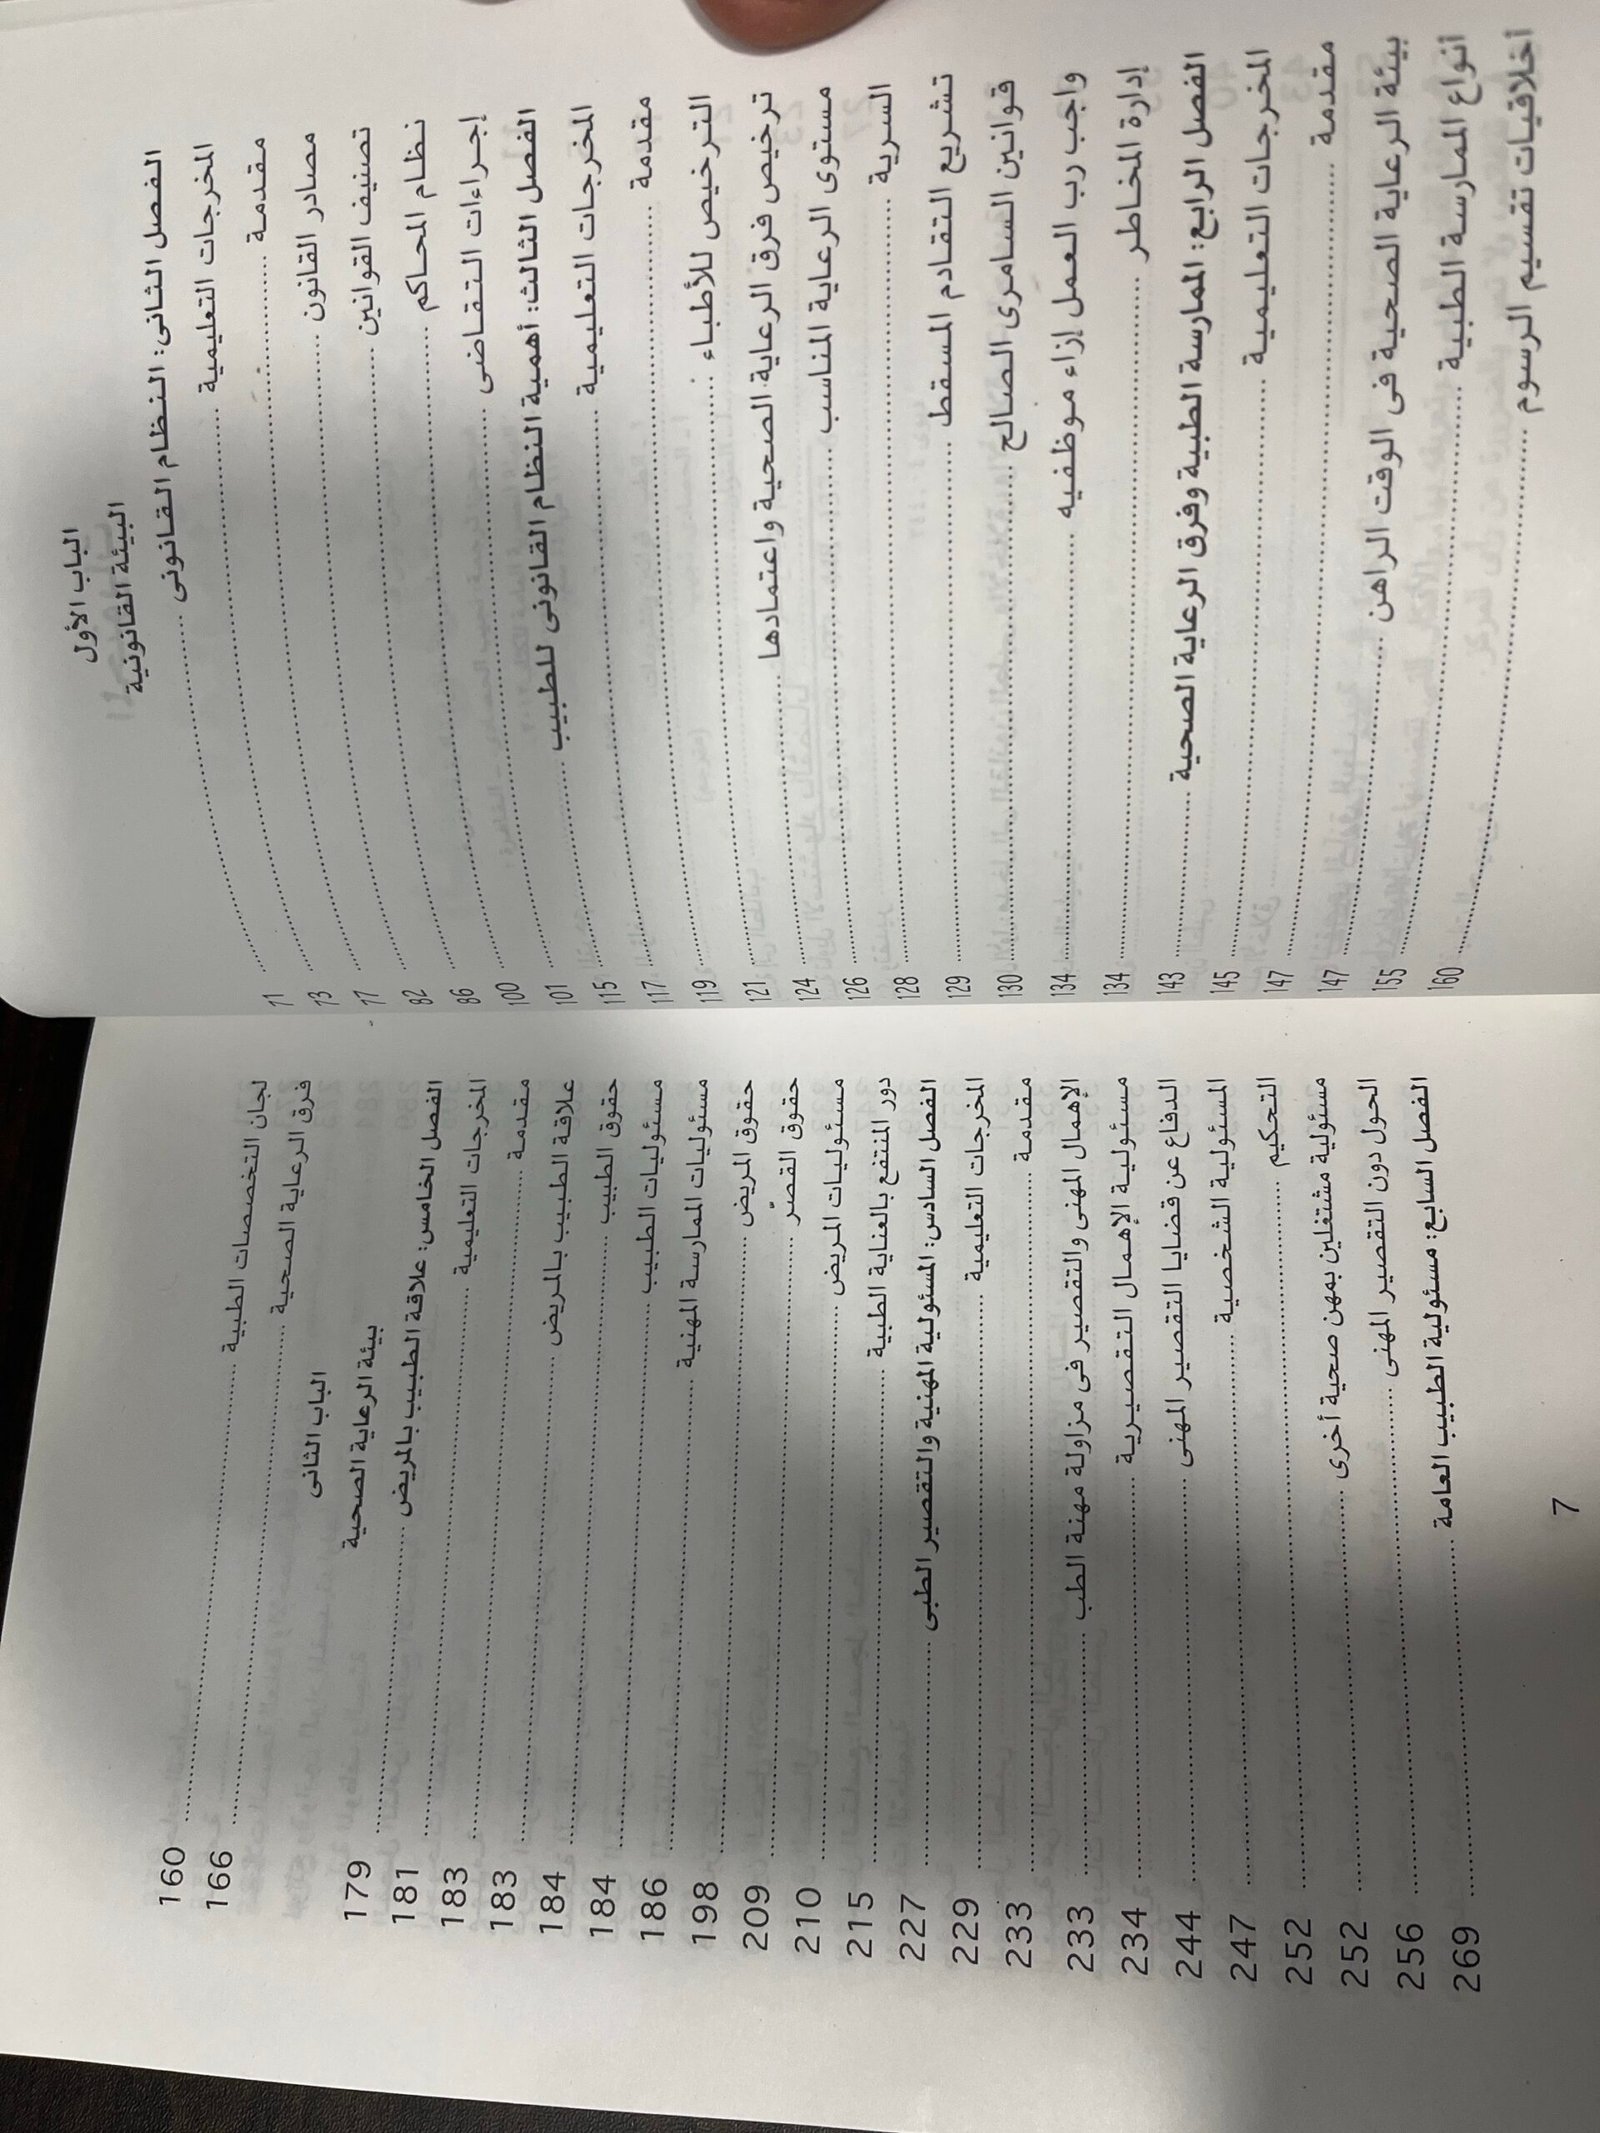 الباب الأول
البيئة القانونية
الفصل الثانى: النظام القانونى ........ 71
المخرجات التعليمية ........ 73
مقدمة ........ 77
مصادر القانون ........ 82
تصنيف القوانين ........ 86
نظام المحاكم ........ 100
إجراءات التقاضى ........ 101
الفصل الثالث: أهمية النظام القانونى للطبيب ........ 115
المخرجات التعليمية ........ 117
مقدمة ........ 119
الترخيص للأطباء ........ 121
ترخيص فرق الرعاية الصحية واعتمادها ........ 124
مستوى الرعاية المناسب ........ 126
السرية ........ 128
تشريع التقادم المسقط ........ 129
قوانين السامرى الصالح ........ 130
واجب رب العمل إزاء موظفيه ........ 134
إدارة المخاطر ........ 134
الفصل الرابع: الممارسة الطبية وفرق الرعاية الصحية ........ 143
المخرجات التعليمية ........ 145
مقدمة ........ 147
بيئة الرعاية الصحية فى الوقت الراهن ........ 147
أنواع الممارسة الطبية ........ 155
أخلاقيات تقسيم الرسوم ........ 160
لجان التخصصات الطبية ........ 160
فرق الرعاية الصحية ........ 166
الباب الثانى
بيئة الرعاية الصحية
الفصل الخامس: علاقة الطبيب بالمريض ........ 179
المخرجات التعليمية ........ 181
مقدمة ........ 183
علاقة الطبيب بالمريض ........ 183
حقوق الطبيب ........ 184
مسئوليات الطبيب ........ 184
مسئوليات الممارسة المهنية ........ 186
حقوق المريض ........ 198
حقوق القصّر ........ 209
مسئوليات المريض ........ 210
دور المنتفع بالعناية الطبية ........ 215
الفصل السادس: المسئولية المهنية والتقصير الطبى ........ 227
المخرجات التعليمية ........ 229
مقدمة ........ 233
الإهمال المهنى والتقصير فى مزاولة مهنة الطب ........ 233
مسئولية الإهمال التقصيرية ........ 234
الدفاع عن قضايا التقصير المهنى ........ 244
المسئولية الشخصية ........ 247
التحكيم ........ 252
مسئولية مشتغلين بمهن صحية أخرى ........ 252
الحول دون التقصير المهنى ........ 256
الفصل السابع: مسئولية الطبيب العامة ........ 269
7